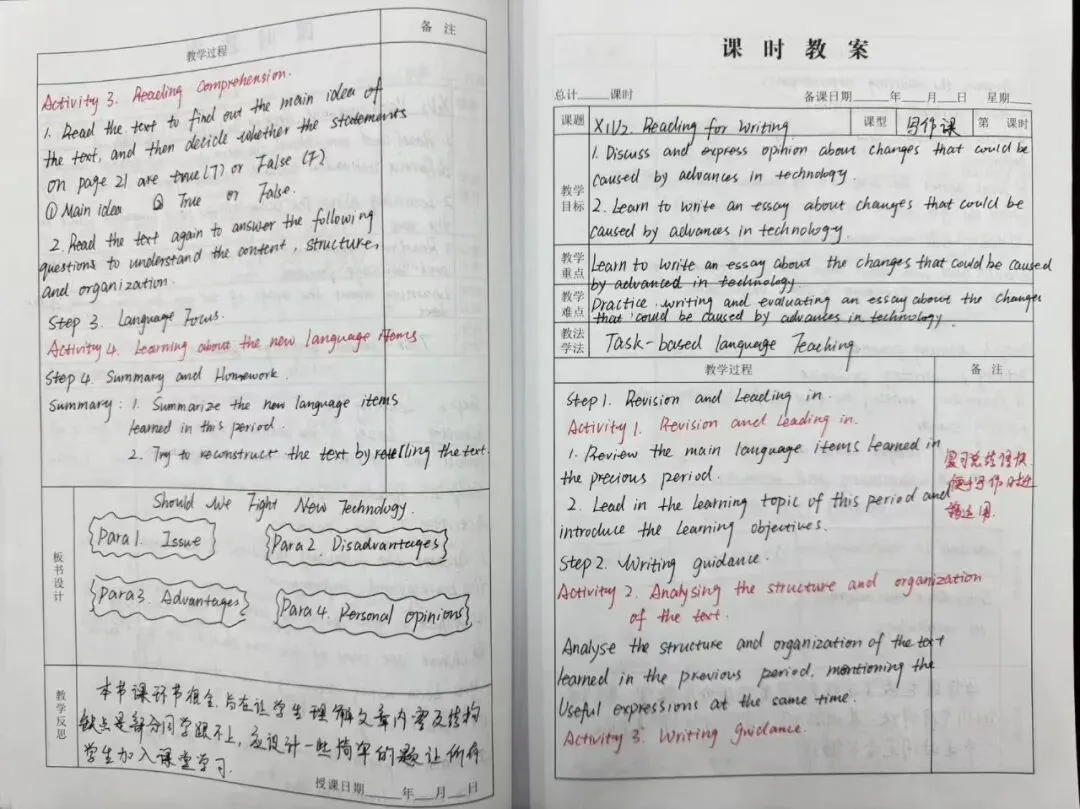 教学过程
备 注
Activity 3. Reading Comprehension.
1. Read the text to find out the main idea of
the text, and then decide whether the statements
on page 21 are true (T) or False (F).
① Main idea ② True or False.
2. Read the text again to answer the following
questions to understand the content, structure,
and organization.
Step 3. Language Focus.
Activity 4. Learning about the new language items
Step 4. Summary and Homework.
Summary: 1. Summarize the new language items
learned in this period.
2. Try to reconstruct the text by retelling the text.
板书设计
Should We Fight New Technology.
Para 1. Issue
Para 2. Disadvantages
Para 3. Advantages
Para 4. Personal opinions
教学反思
本节课环节很全, 旨在让学生理解文章内容及结构
缺点是部分同学跟不上, 应设计一些简单的题让
学生加入课堂学习.
授课日期 年 月 日
课 时 教 案
总计 课时
备课日期 年 月 日 星期
课题
X1U2. Reading for Writing
课型
写作课
第 课时
教学目标
1. Discuss and express opinion about changes that could be
caused by advances in technology.
2. Learn to write an essay about changes that could be
caused by advances in technology.
教学重点
Learn to write an essay about the changes that could be caused
by advanced in technology.
教学难点
Practice writing and evaluating an essay about the changes
that could be caused by advances in technology.
教法学法
Task-based language Teaching
教学过程
备 注
Step 1. Revision and Leading in.
Activity 1. Revision and Leading in.
1. Review the main language items learned in
the precious period.
2. Lead in the learning topic of this period and
introduce the learning objectives.
复习总结语块
便于写作时
运用
Step 2. Writing guidance.
Activity 2. Analysing the structure and organization
of the text.
Analyse the structure and organization of the text
learned in the previous period, mentioning the
Useful expressions at the same time.
Activity 3. Writing guidance.